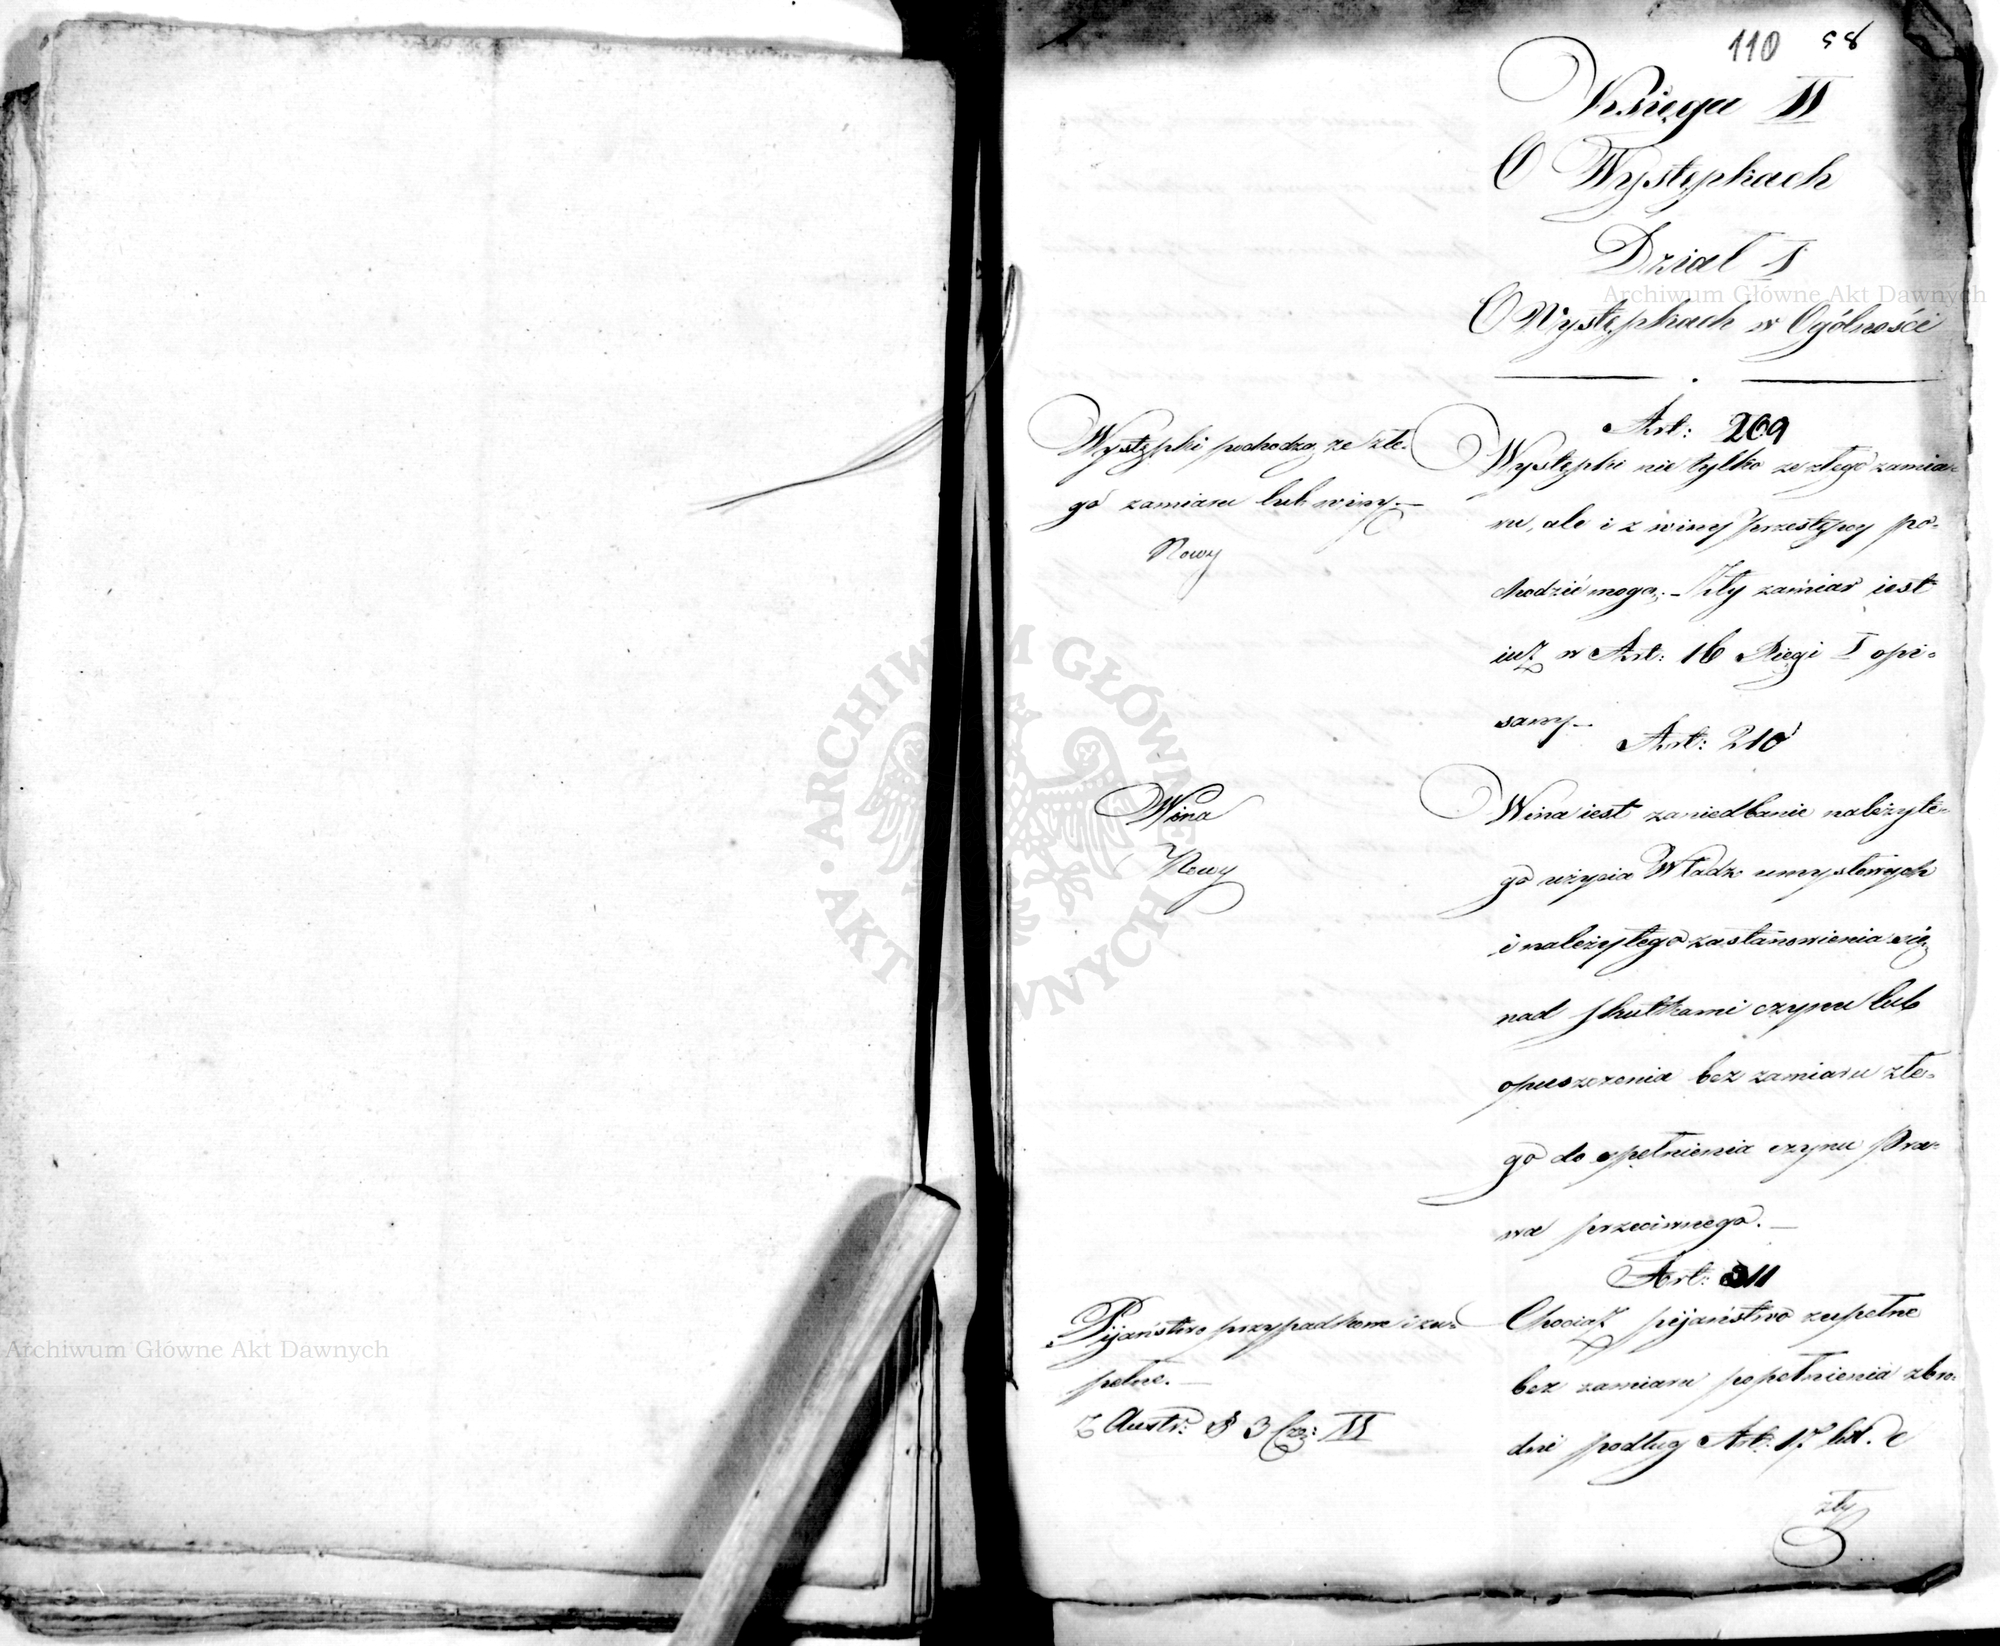 110 98
Księga II
O Występkach
Dział I
O Występkach w Ogólności
Art: 209
Występki pochodzą ze złe-
go zamiaru lub winy.—
Nowy
Występki nie tylko ze złego zamia-
ru, ale i z winy przestępcy po-
chodzić mogą. – Zły zamiar iest
iuż w Art: 16 Xięgi I opi-
sany.—
Art: 210
Wina
Nowy
Wina iest zaniedbanie należyte-
go użycia Władz umysłowych
i należytego zastanowienia się
nad skutkami czynu lub
opuszczenia bez zamiaru złe-
go do spełnienia czynu Pra-
wa przeciwnego.—
Art: 211
Pijaństwo przypadkowe i zu-
pełne.—
Z Austr: § 3 Czę: II
Chociaż pijaństwo zupełne
bez zamiaru popełnienia zbro-
dni podług Art: 17 lit. c
zły
Archiwum Główne Akt Dawnych
Archiwum Główne Akt Dawnych
ARCHIWUM GŁÓWNE AKT DAWNYCH